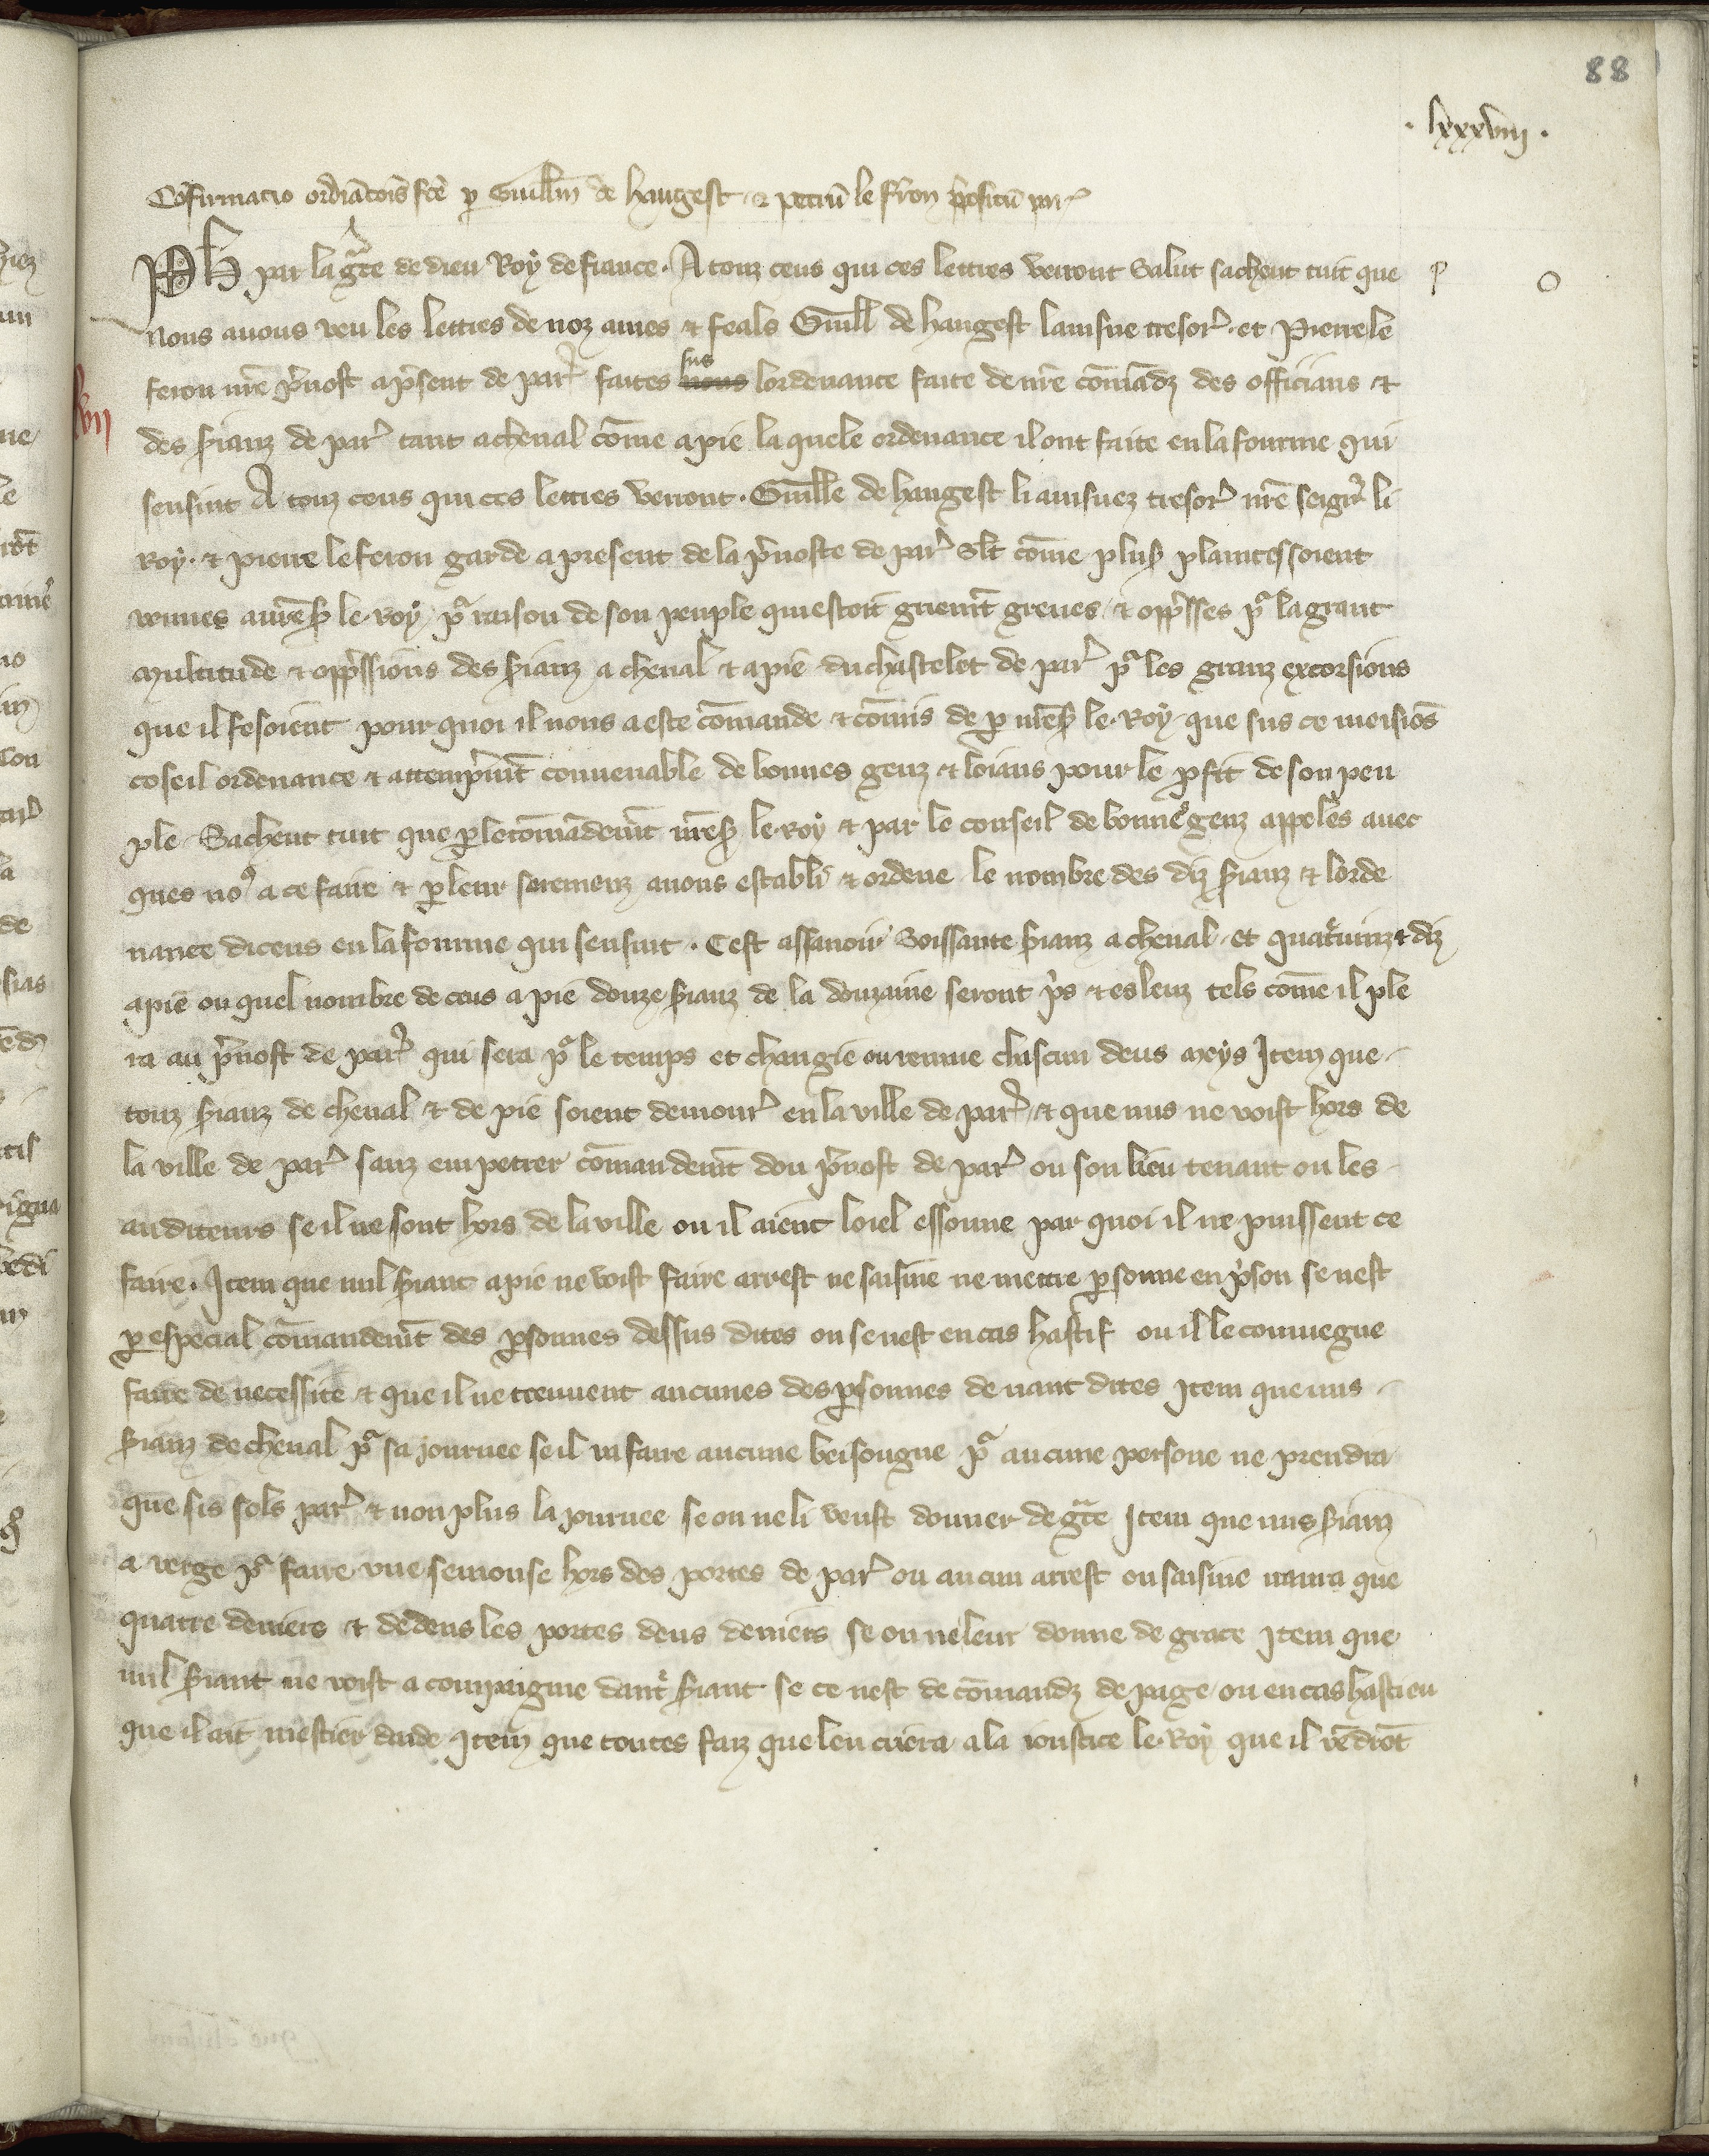 88
. lxxxviij .
Cōfirmatio ordīatiōīs fcē ꝑ Guillm de hangest ⁊ petrū le fron ꝑpositū par̾
Ph par la gr̃ce de dieu Roy de france. A touz ceus qui ces lettres verront Salut sachent tuit que
nous auons veu les lettres de noz ames ⁊ feals Guill de hangest lainsne tresor̾. et Pierre le
feron nr̃e p̾uost a p̾sent de par̾ faites nous sus lordenance faite de nr̃e cōmādz des officiaus ⁊
des s̾ianz de par̾ tant a cheual cōme a pie la quele ordenance il ont faite en la fourme qui
sensuit A touz ceus qui ces lettres verront. Guille de hangest li ainsnez tresor̾ nr̃e seigr̾ li
Roy. ⁊ pierre le feron garde a present de la p̾uoste de par̾ Slt cōme plus̾ plaintes soient
venues a nr̃es̾ le. roy. pᵃ raison de son peuple qui estoit griemt̃ greues ⁊ opp̾sses pᵃ la grant
multitude ⁊ opp̾ssions des s̾ianz a cheual ⁊ a pie du chastelet de par̾ pᵃ les granz extorsions
que il fesoient pour quoi il nous a este cōmande ⁊ cōmis de ꝑ nr̃es̾ le. Roy. que sus ce meisiōs
coseil ordenance ⁊ attemp̾mt̃ conuenable de bonnes genz ⁊ loiaus pour le ꝓfit de son peu
ple. Sachent tuit que ꝑ le cōmādemt̃ nr̃es̾ le. roy ⁊ par le conseil de bonnes genz appeles auec
ques noꝰ a ce faire ⁊ ꝑ leur seremenz auons establi ⁊ ordene le nombre des diz s̾ianz ⁊ lorde
nance diceus en la fourme qui sensuit. Cest assauoir Soissante s̾ianz a cheual. et quat̾uinz ⁊ diz
a pie ou quel nombre de ceus a pie douze s̾ianz de la douzaine seront p̾s ⁊ esleuz tels cōme il ple
ra au p̾uost de par̾ qui sera pᵃ le temps et changie ou remue chascun deus moys Item que
touz s̾ianz de cheual ⁊ de pie soient demour̾ en la ville de par̾ ⁊ que nus ne voist hors de
la ville de par̾ sanz empetrer cōmandemt̃ dou p̾uost de par̾ ou son lieu tenant ou les
auditeurs se il ne sont hors de la ville ou il aient loiel essonne par quoi il ne puissent ce
faire. Item que nul s̾iant a pie ne voist faire arrest ne saisine ne mettre ꝑsonne en p̾son se nest
ꝑ especial cōmandemt̃ des ꝑsonnes dessus dites ou se nest en cas hastif ou il le conuegne
faire de necessite ⁊ que il ne treuuent aucunes des ꝑsonnes deuant dites Item que nus
s̾ianz de cheual pᵃ sa journee se il va faire aucune besongne pᵃ aucune persone ne prendra
que sis sols par̾ ⁊ non plus la journee se on ne li veust donner de gr̃ce Item que nus s̾ianz
a verge pᵃ faire vne semonse hors des portes de par̾ ou aucun arrest ou saisine naura que
quatre deniers ⁊ dedens les portes deus deniers se on ne leur donne de grace Item que
nul s̾iant ne voist a compaigne daut̾ s̾iant se ce nest de cōmandz de page ou en cas hastieu
que il ait mestier daide Item que toutes faiz que len criera a la ioustice le. Roy que il vēdrōt